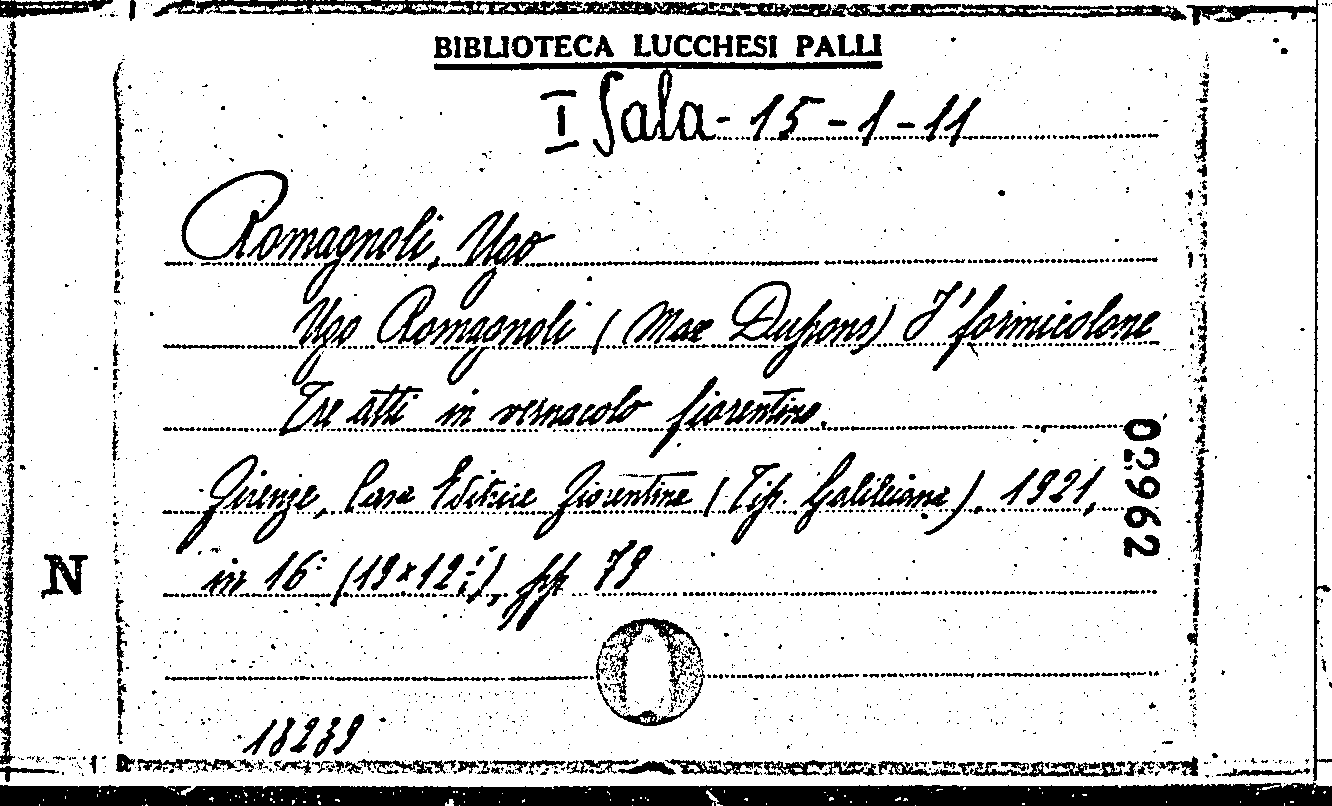 BIBLIOTECA LUCCHESI PALLI
I Sala - 15 - 1 - 11
Romagnoli, Ugo
Ugo Romagnoli (Max Dupons) I' formicolone
Tre atti in vernacolo fiorentino.
Firenze, Casa Editrice Fiorentina (Tip. Galileiana), 1921,
in 16° (19×12), pp. 79
02962
N